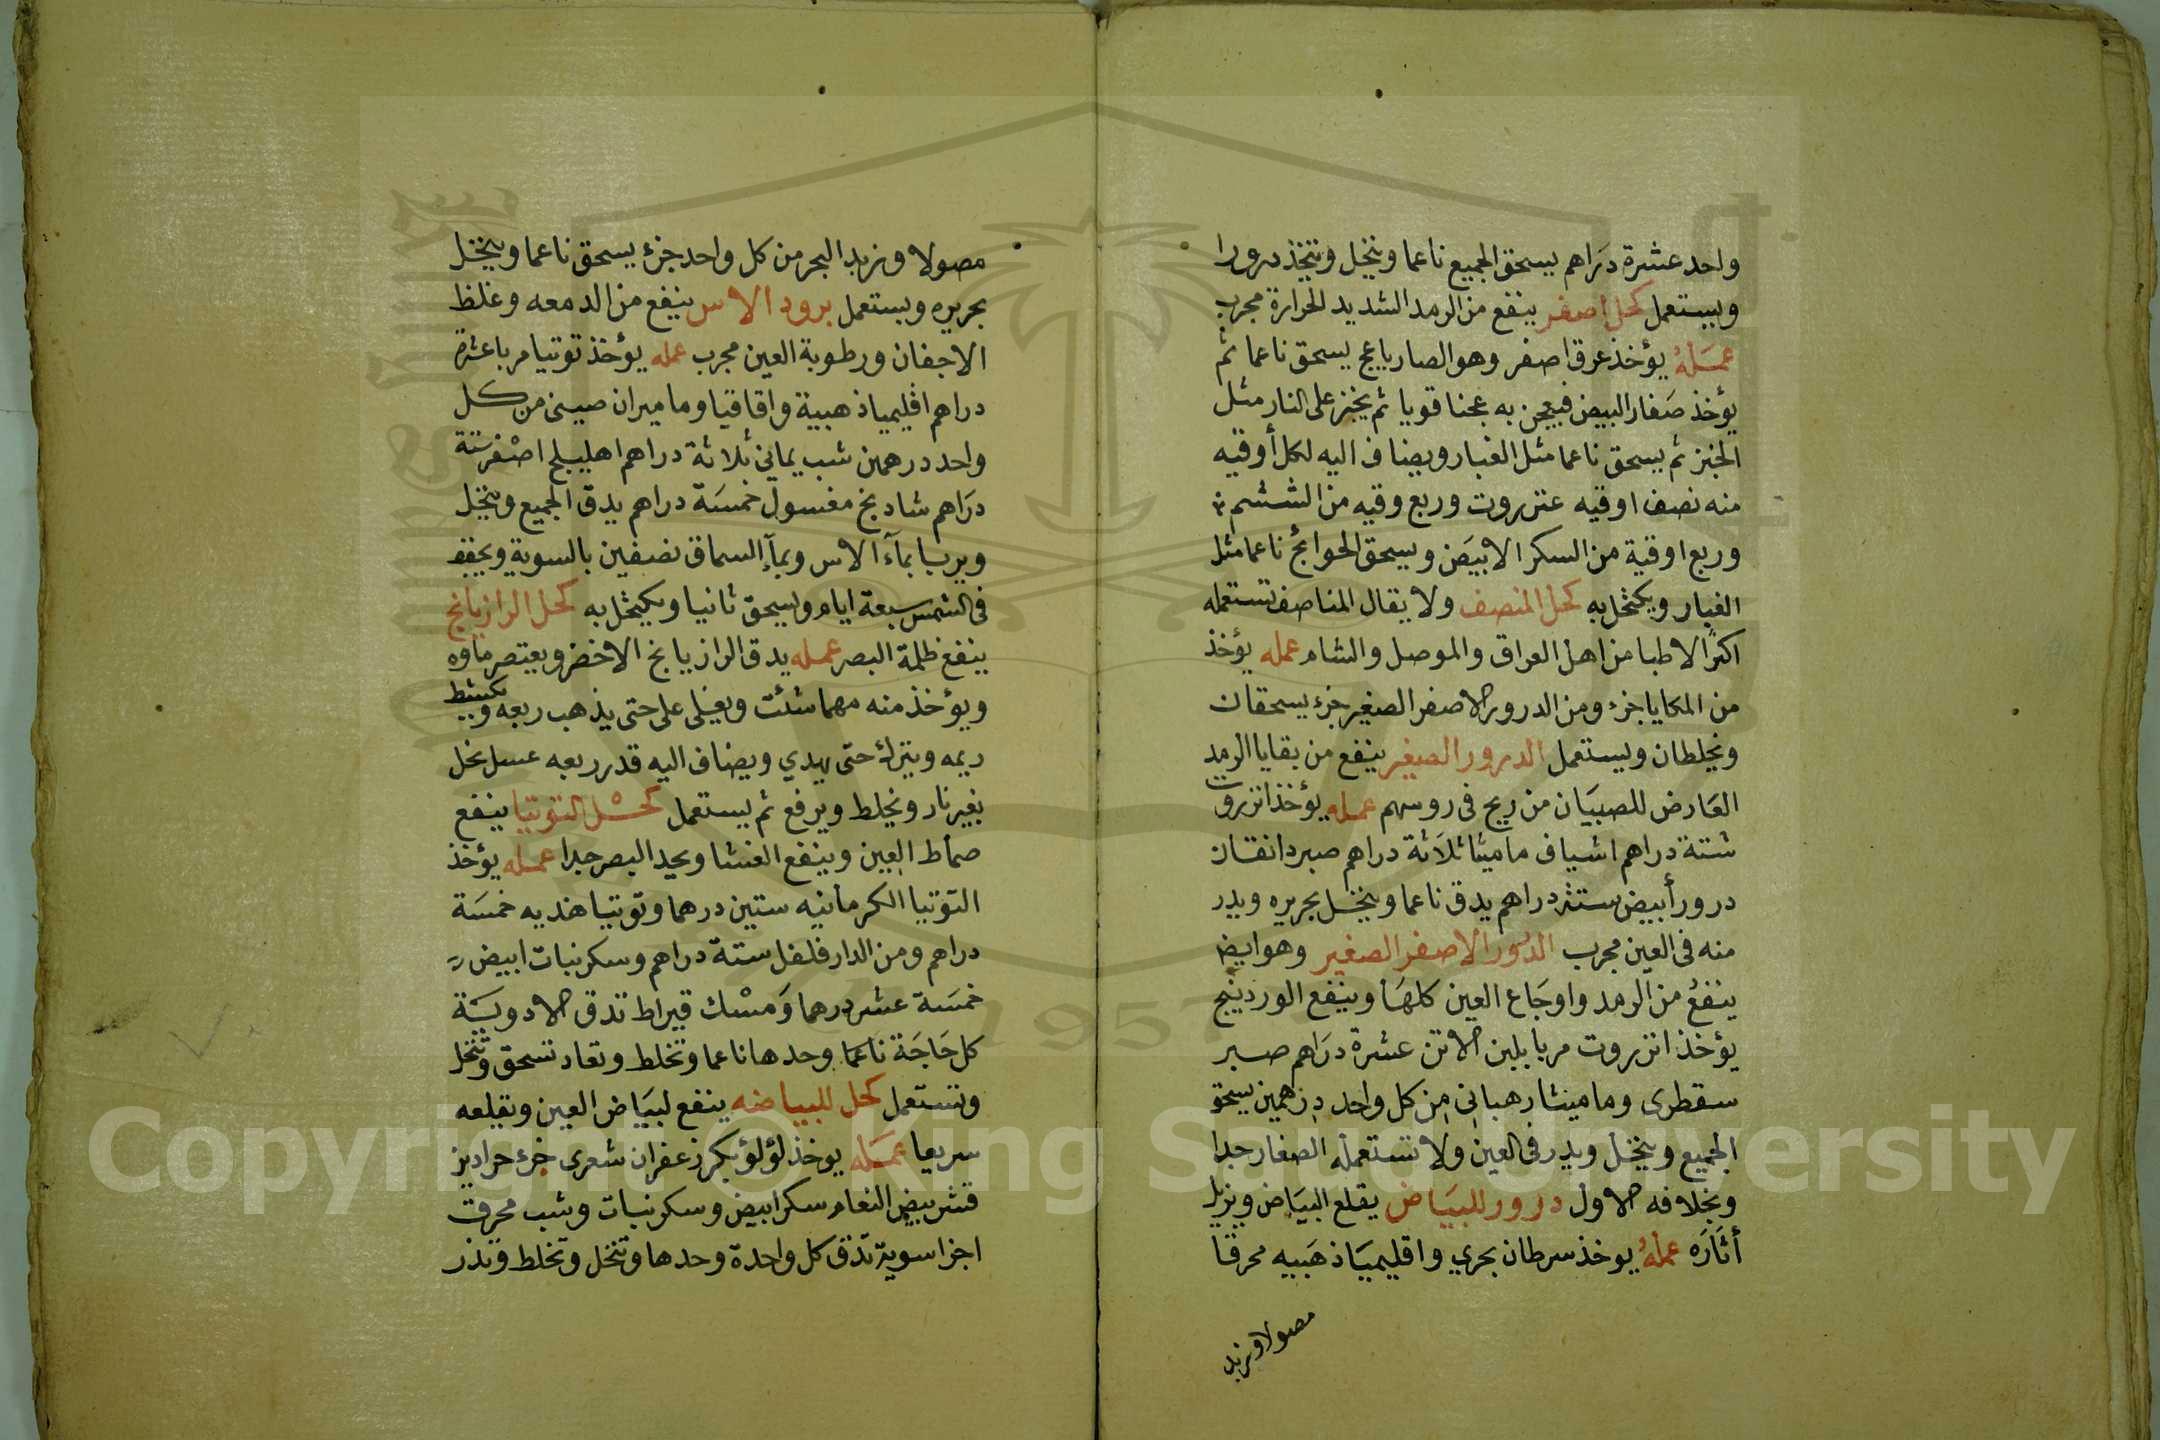 واحد عشرة دراهم يسحق الجميع ناعما وينخل ويتخذ درورا
ويستعمل كحل اصفر ينفع من الرمد الشديد الحرارة مجرب
عمله يؤخذ عرق اصفر وهو الصارباعج يسحق ناعما ثم
يؤخذ صفار البيض فيعجن به عجنا قويا ثم يخبز على النار مثل
الخبز ثم يسحق ناعما مثل الغبار ويضاف اليه لكل أوقيه
منه نصف اوقيه عنزروت وربع وقيه من الششم
وربع اوقية من السكر الابيض ويسحق الحوائج ناعما مثل
الغبار ويكتحل به كحل المنصف ولا يقال المناصف تستعمله
اكثر الاطبا من اهل العراق والموصل والشام عمله يؤخذ
من المكايا جزء ومن الدرور الاصفر الصغير جزء يسحقان
ويخلطان ويستعمل الدرور الصغير ينفع من بقايا الرمد
العارض للصبيان من ريح في روسهم عمله يؤخذ انزروت
ستة دراهم اشياف ماميثا ثلاثة دراهم صبر دانقان
درور أبيض ستة دراهم يدق ناعما وينخل بحريره ويدر
منه في العين مجرب الدرور الاصفر الصغير وهو ايضا
ينفع من الرمد واوجاع العين كلها وينفع الوردينج
يؤخذ انزروت مربا بلبن الاتن عشرة دراهم صبر
سقطرى وماميثا رهبانى من كل واحد درهمين يسحق
الجميع وينخل ويدر في العين ولا تستعمله الصغار جدا
وبخلافه الاول درور للبياض يقلع البياض ويزيل
أثاره عمله يوخذ سرطان بحري واقليميا ذهبيه محرقا
مصولا وزبد
مصولا وزبد البحر من كل واحد جزء يسحق ناعما وينخل
بحريره ويستعمل برود الاس ينفع من الدمعه وغلظ
الاجفان ورطوبة العين مجرب عمله يؤخذ توتيا مربا عشرة
دراهم اقليميا ذهبية واقاقيا وماميران صينى من كل
واحد درهمين شب يماني ثلاثة دراهم اهليلج اصفر ستة
دراهم شادنج مغسول خمسة دراهم يدق الجميع وينخل
ويربا بماء الاس وبماء السماق نصفين بالسوية ويجفف
في الشمس سبعة ايام ويسحق ثانيا ويكتحل به كحل الرازيانج
ينفع ظلمة البصر عمله يدق الرازيانج الاخضر ويعتصر ماوه
ويؤخذ منه مهما شئت ويغلى على حتى يذهب ربعه ويكشط
ريمه ويترك حتى يهدي ويضاف اليه قدر ربعه عسل نحل
بغير نار ويخلط ويرفع ثم يستعمل كحل التوتيا ينفع
صماط العين وينفع الغشا ويحد البصر جدا عمله يؤخذ
التوتيا الكرمانيه ستين درهما وتوتيا هنديه خمسة
دراهم ومن الدار فلفل ستة دراهم وسكر نبات ابيض
خمسة عشر درهما ومسك قيراط تدق الادوية
كل حاجة ناعما وحدها ناعما وتخلط وتعاد تسحق وتنخل
وتستعمل كحل للبياضه ينفع لبياض العين ويقلعه
سريعا عمله يوخذ لؤلؤ بكر زعفران شعرى جزء حرادين
قشر بيض النعام سكر ابيض وسكر نبات وشب محرق
اجزا سوية تدق كل واحدة وحدها وتنخل وتخلط وتذر
Copyright © King Saud University
1957